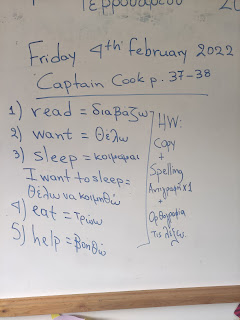 Τερψιθέας
20
Friday 4th february 2022
Captain Cook p. 37-38
1) read = διαβάζω
2) want = θέλω
3) sleep = κοιμάμαι
I want to sleep =
θέλω να κοιμηθώ
4) eat = τρώω
5) help = βοηθώ
HW:
Copy
+
Spelling
Αντιγραφή x1
+
Ορθογραφία
τις λέξεις